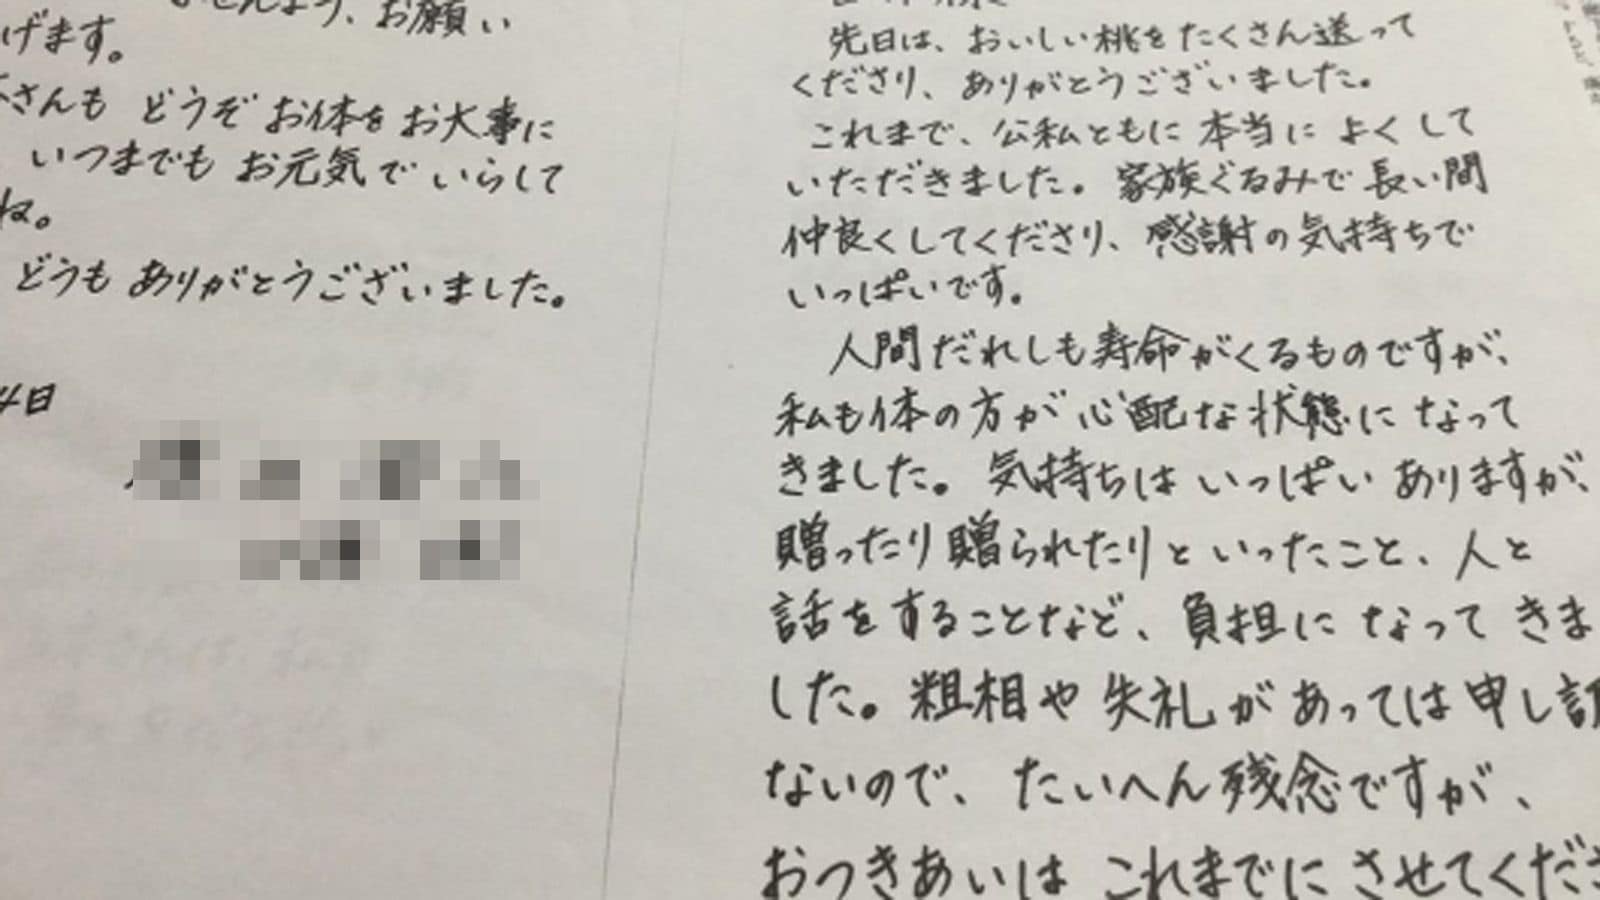 先日は、おいしい桃をたくさん送って
くださり、ありがとうございました。
これまで、公私ともに本当によくして
いただきました。家族ぐるみで長い間
仲良くしてくださり、感謝の気持ちで
いっぱいです。
人間だれしも寿命がくるものですが、
私も体の方が心配な状態になって
きました。気持ちはいっぱいありますが、
贈ったり贈られたりといったこと、人と
話をすることなど、負担になってきま
した。粗相や失礼があっては申し訳
ないので、たいへん残念ですが、
おつきあいはこれまでにさせてくださ
お願い
げます。
さんもどうぞお体をお大事に
いつまでもお元気でいらして
ね。
どうもありがとうございました。
4日